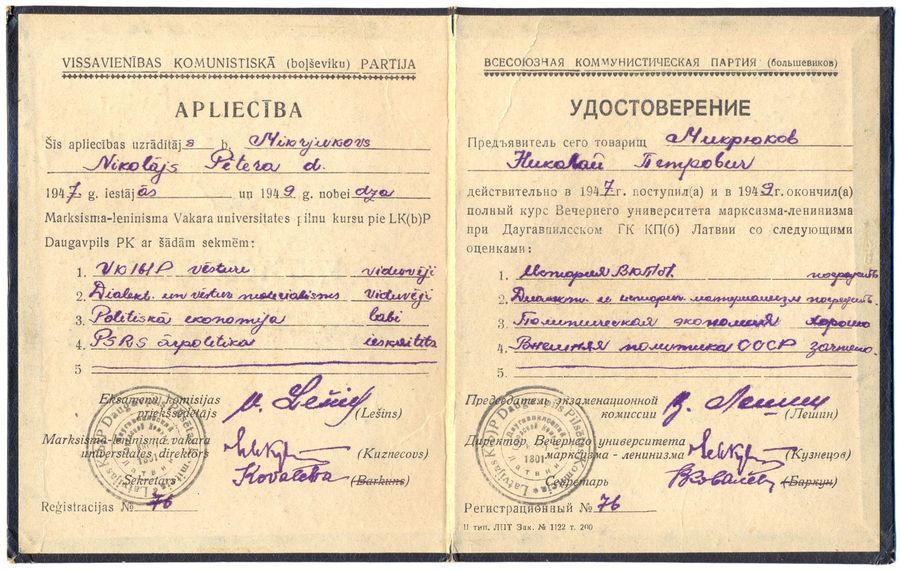 VISSAVIENĪBAS KOMUNISTISKĀ (boļševiku) PARTIJA
APLIECĪBA
Šīs apliecības uzrādītājs b. Mikrjukovs
Nikolājs Pētera d.
1947 g. iestājās un 1949 g. nobeidza
Marksisma-ļeninisma Vakara universitates pilnu kursu pie LK(b)P
Daugavpils PK ar šādām sekmēm:
1. VK(b)P vēsture viduvēji
2. Dialekt. un vēstur. materialisms viduvēji
3. Politiskā ekonomija labi
4. PSRS ārpolitika ieskaitīts
5
Eksamenu komisijas
priekšsēdētājs (Lešins)
Marksisma-ļeninisma vakara
universitates direktors (Kuznecovs)
Sekretārs Kovaļeva (Barkuns)
Reģistrācijas № 76
ВСЕСОЮЗНАЯ КОММУНИСТИЧЕСКАЯ ПАРТИЯ (большевиков)
УДОСТОВЕРЕНИЕ
Предъявитель сего товарищ Микрюков
Николай Петрович
действительно в 1947 г. поступил(а) и в 1949 г. окончил(а)
полный курс Вечернего университета марксизма-ленинизма
при Даугавпилсском ГК КП(б) Латвии со следующими
оценками:
1. История ВКПб посредств.
2. Диалект. и историч. материализм посредств.
3. Политическая экономия хорошо
4. Внешняя политика СССР зачтено.
5
Председатель экзаменационной
комиссии Лешин (Лешин)
Директор Вечернего университета
марксизма - ленинизма (Кузнецов)
Секретарь (Баркун)
Регистрационный № 76
II тип. ЛПТ Зак. № 1122 т. 200